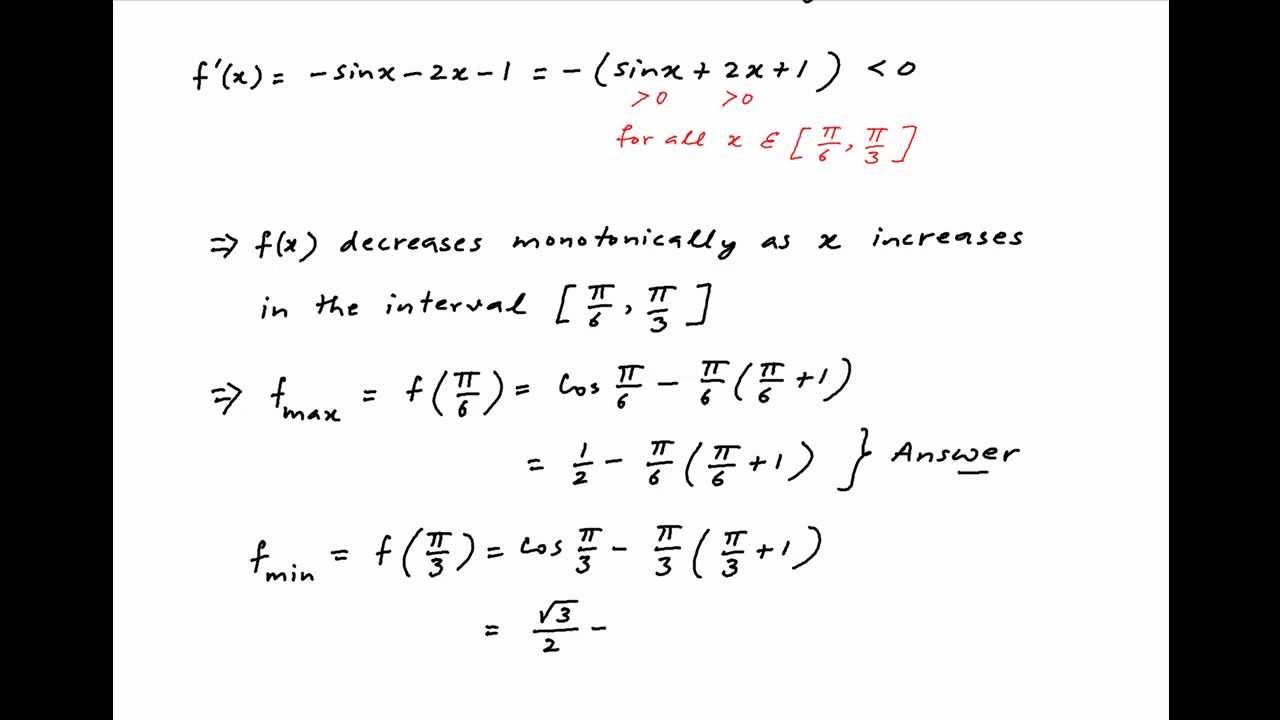 f'(x) = - sinx - 2x - 1 = - (sinx + 2x + 1) < 0
>0 >0
for all x ε [π/6, π/3]
⇒ f(x) decreases monotonically as x increases
in the interval [π/6, π/3]
⇒ f_max = f(π/6) = cos π/6 - π/6 (π/6 + 1)
= 1/2 - π/6 (π/6 + 1) } Answer
f_min = f(π/3) = cos π/3 - π/3 (π/3 + 1)
= √3/2 -